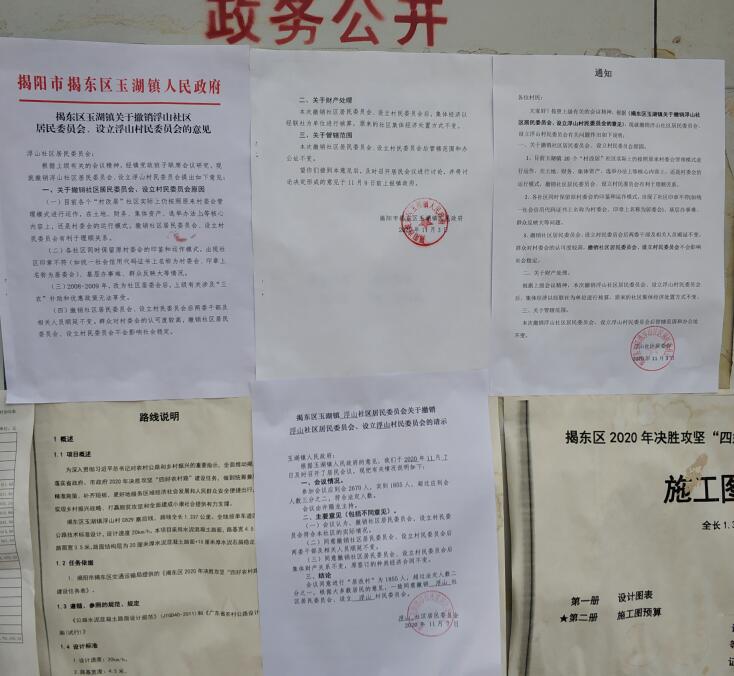 政务公开
揭阳市揭东区玉湖镇人民政府
揭东区玉湖镇关于撤销浮山社区
居民委员会、设立浮山村民委员会的意见
浮山社区居民委员会:
根据上级有关的会议精神,经镇党政班子联席会议研究,现
就撤销浮山社区居民委员会、设立浮山村民委员会提出如下意见:
一、关于撤销社区居民委员会、设立村民委员会原因
(一)目前各个“村改居”社区实际上仍按照原来村委会管
理模式进行运作,在土地、财务、集体资产、选举办法上等核心
内容上,还是村委会的运行模式,撤销社区居民委员会、设立村
民委员会有利于理顺关系。
(二)各社区同时保留原村委会的印签和运作模式,出现社
区印章不符(如统一社会信用代码证书上名称为村委会、印章上
名称为居委会)、基层办事难、群众反映大等情况。
(三)2008-2009年,改为社区居委会后,上级有关涉及“三
农”补助和优惠政策无法享受。
(四)撤销社区居民委员会、设立村民委员会后两委干部及
相关人员顺延不变,群众对村委会的认可度较高,撤销社区居民
委员会、设立村民委员会不会影响社会稳定。
二、关于财产处理
本次撤销社区居民委员会、设立村民委员会后,集体经济以
经联社为单位进行核算,原来的社区集体经济处置方式不变。
三、关于管辖范围
本次撤销社区居民委员会、设立村民委员会后管辖范围和办
公址不变。
望你们接到本意见后,及时召开居民会议进行讨论,并将讨
论决定形成的意见于11月9日前上报镇政府。
揭阳市揭东区玉湖镇人民政府
2020年11月3日
通知
各位村民:
大家好!按照上级有关的会议精神,根据《揭东区玉湖镇关于撤销浮山社
区居民委员会、设立浮山村民委员会的意见》,现就撤销浮山社区居民委员会、
设立浮山村民委员会有关问题作出如下说明:
一、关于撤销社区居民委员会、设立村民委员会原因
1、目前玉湖镇20个“村改居”社区实际上仍按照原来村委会管理模式进
行运作,在土地、财务、集体资产、选举办法上等核心内容上,还是村委会的
运行模式,撤销社区居民委员会、设立村民委员会有利于理顺关系。
2、各社区同时保留原村委会的印签和运作模式,出现了社区印章不符(如统
一社会信用代码证书上名称为村委会、印章上名称为居委会)、基层办事难、
群众反映大等情况。
会稳定。
二、关于财产处理
根据上级会议精神,本次撤销社区居民委员会、设立村民委员会后,
集体经济以经联社为单位进行核算,原来的社区集体经济处置方式不变。
三、关于管辖范围
本次撤销社区居民委员会、设立村民委员会后管辖范围和办公址
不变。
浮山社区居委会
2020年11月3日
揭东区玉湖镇 浮山社区居民委员会关于撤销
浮山社区居民委员会、设立浮山村民委员会的请示
玉湖镇人民政府:
根据玉湖镇人民政府的意见,我们于2020年11月7
日及时召开了居民会议,现把有关情况说明如下:
一、会议情况。
参加会议应到会2670人,实到1855人,超过应到会
人数三分之二,符合法定人数。
会议由许赐龙主持。
二、主要意见(包括不同意见)。
(一)会议认为,撤销社区居民委员会、设立村民委
员会符合本社区的实际情况。
(二)同意撤销社区居民委员会、设立村民委员会后
两委干部及相关人员顺延不变。
(三)同意撤销居民委员会、设立村民委员会后
集体财产关系不变,原签订的种类经济合同不变。
三、结论
会议同意进行“居改村”为1855人,超过法定人数二
分之一,根据大多数居民的意见,一致同意撤销 浮山 社
区居民委员会、设立 浮山 村民委员会。
浮山 社区居民委员会
2020年11月7日
路线说明
1 概述
1.1 项目概述
为深入贯彻习近平总书记对农村公路和乡村振兴的重要指示,全面推动
公路技术标准设计,设计速度20km/h,
1.2 任务依据
1.3 遵循、参照的规范、规定
1.4 设计标准
1.设计速度:20km/h。
2.路基宽度:4.5米。
揭东区 2020 年决胜攻坚 “四
施工图
全长1.3
第一册 设计图表
★第二册 施工图预算